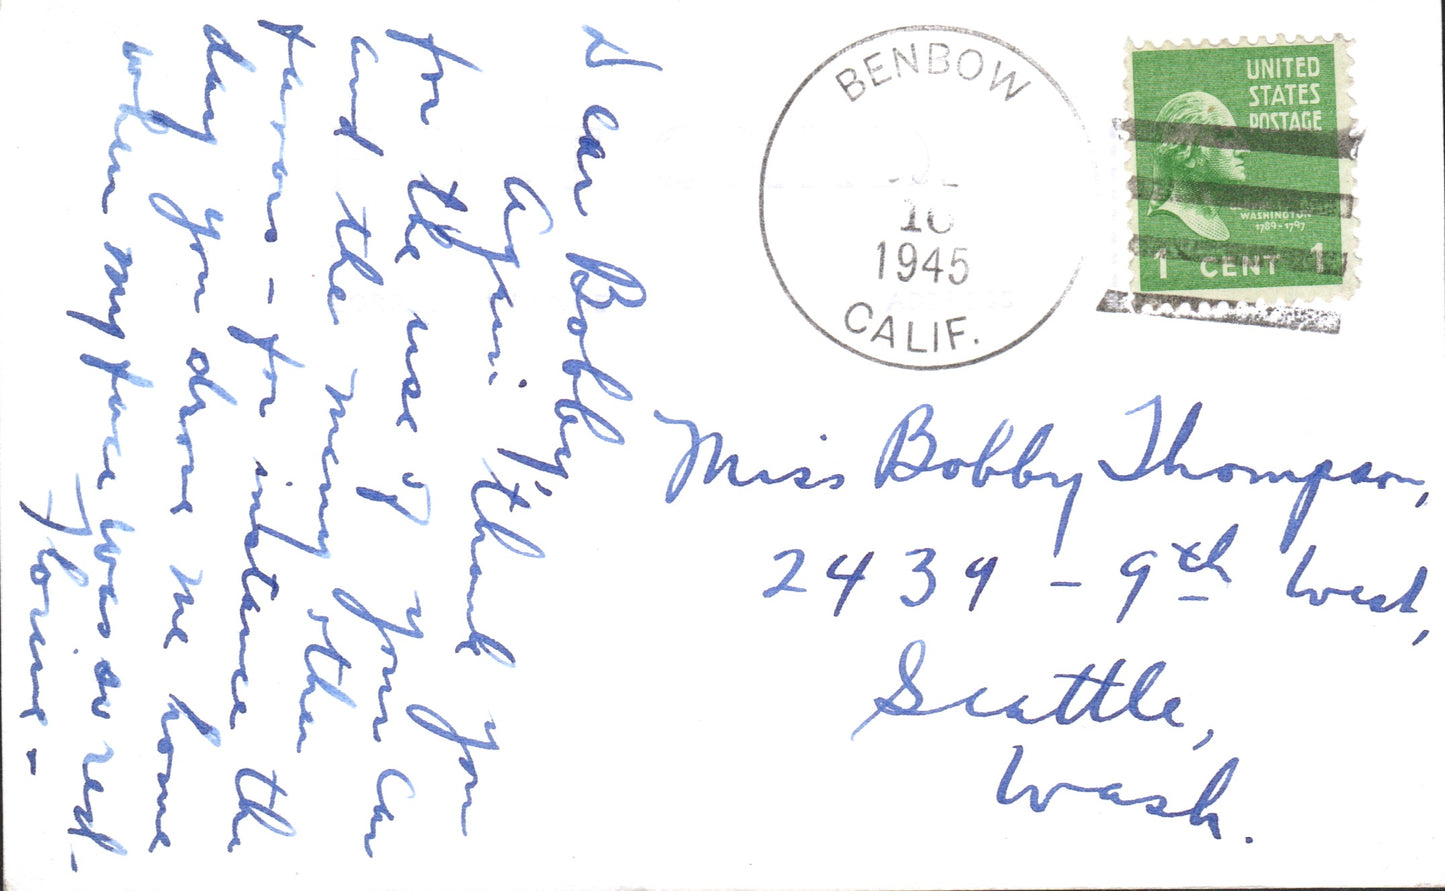 Dear Bobby,
Again, thank you
for the use of your car
and the many other
favors - for instance the
day you drove me home
when my face was so red -
Florine -
BENBOW
1945
CALIF.
UNITED
STATES
POSTAGE
WASHINGTON
1789-1797
1 CENT 1
Miss Bobby Thompson,
2439 - 9th West,
Seattle,
Wash.